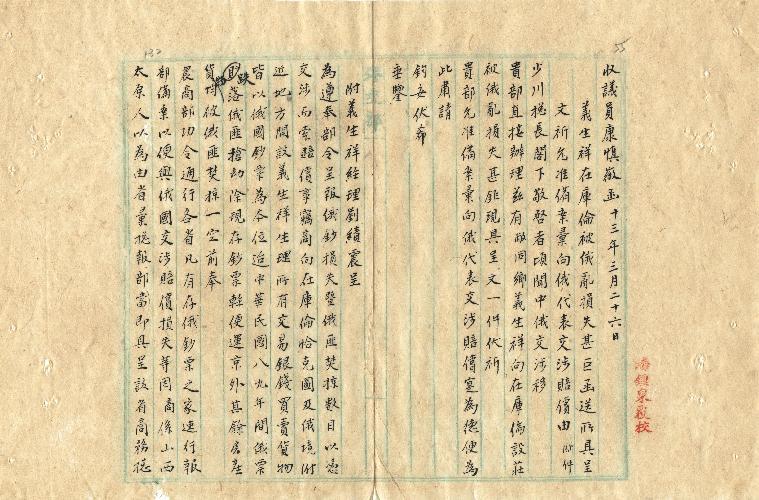 收議員康慎徽函 十三年三月二十六日
義生祥在庫倫被俄亂損失甚巨函送所具呈
文祈允准備案彙向俄代表交涉賠償由 附件
少川總長閣下敬啓者頃聞中俄交涉移
貴部直接辦理茲有敝同鄉義生祥向在庫倫設莊
被俄亂損失甚鉅現具呈文一件伏祈
貴部允准備案彙向俄代表交涉賠償實為德便為
此肅請
鈞安伏希
垂鑒
附義生祥經理劉績震呈
為遵長部令呈報俄鈔損失暨俄匪焚掠數目以憑
交涉而索賠償事竊商向在庫倫恰克圖及俄境附
近地方開設義生祥生理所有交易銀錢買賣貨物
皆以俄國鈔票為本位迨中華民國八九年間俄票
跌落俄匪搶劫除現存鈔票輕便運京外其餘房産
貨物均被俄匪焚掠一空前奉
農商部功令通行各省凡有存俄鈔票之家速行報
部備案以便與俄國交涉賠償損失等因商係山西
太原人以為由省彙總報部當即具呈該省商務總
潘鎮泉 校
55